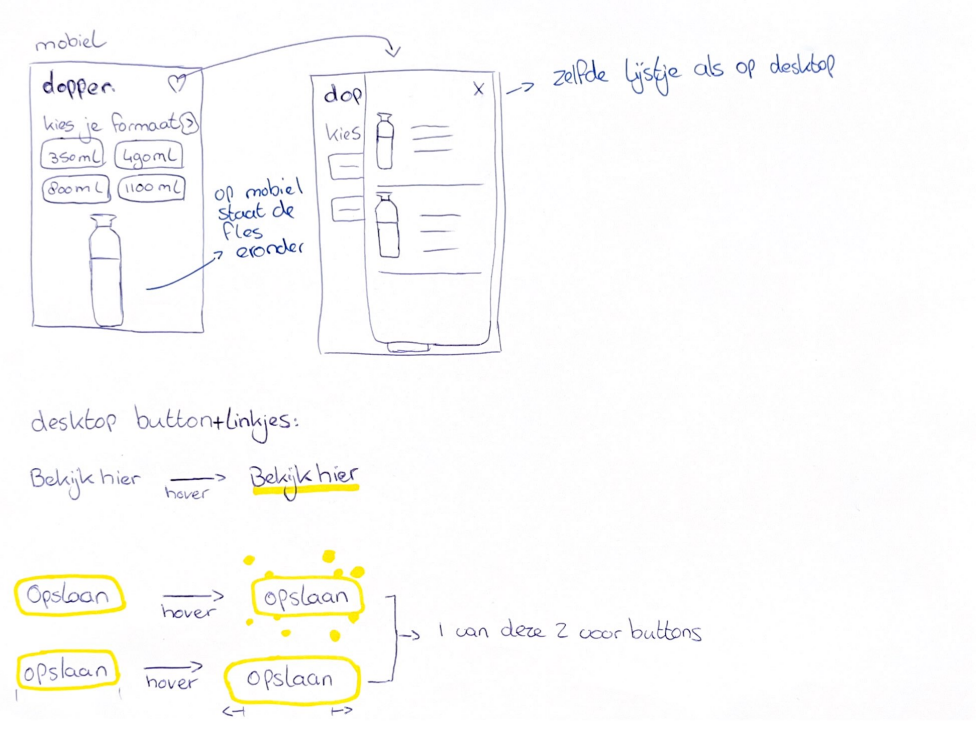 mobiel
dopper.
kies je formaat
350mL
490mL
800mL
1100mL
op mobiel
staat de
fles
eronder
dop
X
kies
zelfde lijstje als op desktop
desktop button+linkjes:
Bekijk hier
hover
Bekijk hier
Opslaan
hover
opslaan
opslaan
hover
opslaan
1 van deze 2 voor buttons